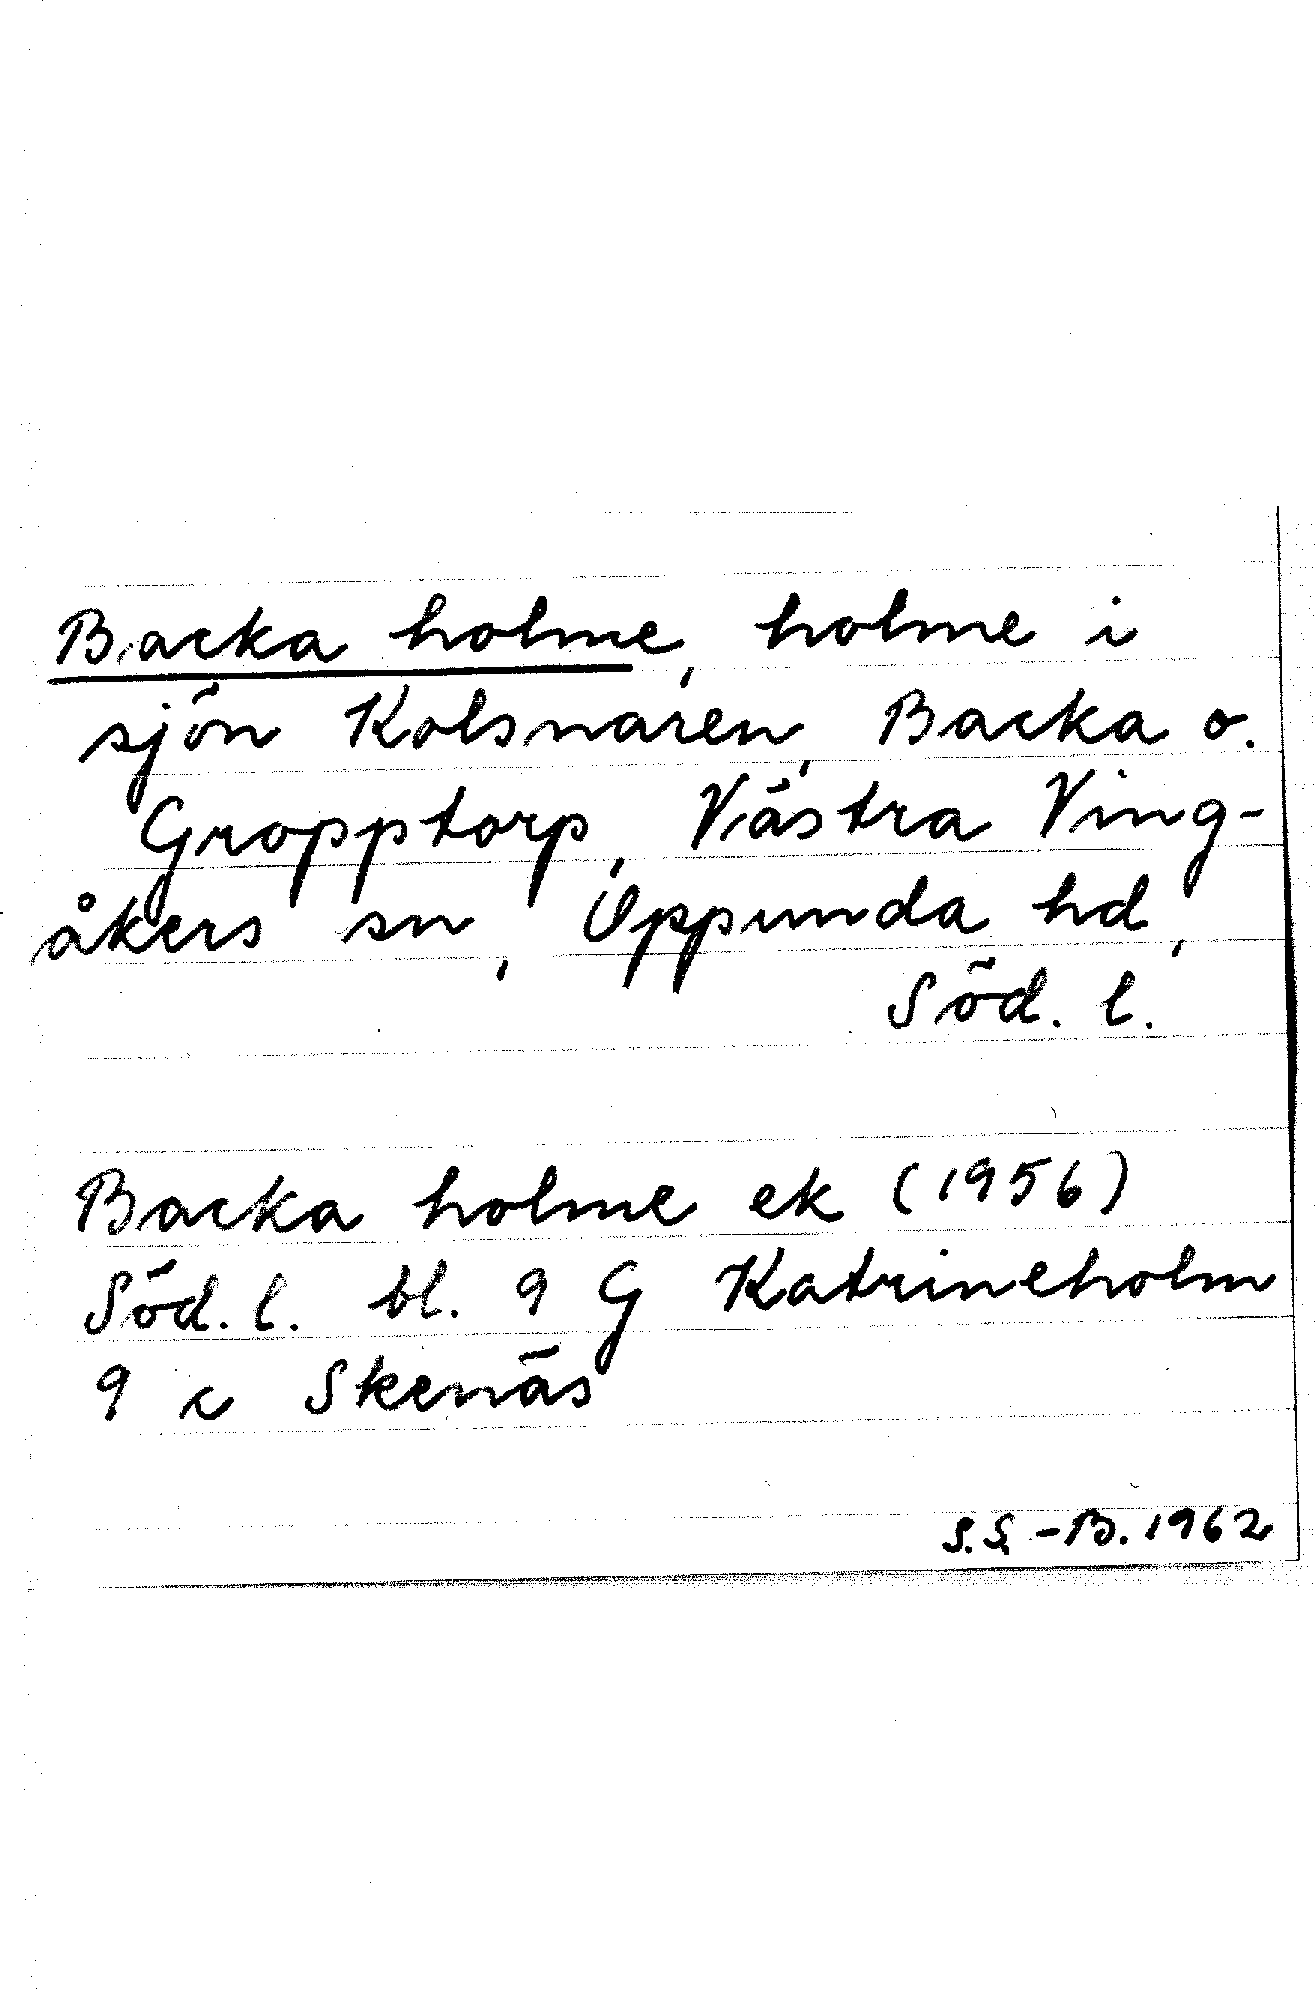 Backa holme, holme i
sjön Kolsnaren, Backa o.
Gropptorp, Västra Ving-
åkers sn, Oppunda hd,
Söd. l.
Backa holme ek (1956)
Söd. l. bl. 9 G Katrineholm
9 c Skenäs
S. S. -B. 1962